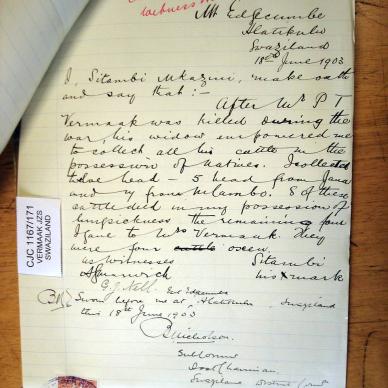 witness
Mt Edgecumbe
Hlatikulu
Swaziland
18th June 1903
I, Sitambi Mkazini, make oath
and say that :-
After Mr P T
Vermaak was killed during the
war, his widow empowered me
to collect all his cattle in the
possession of natives. I collected
twelve head - 5 head from Jana
and 7 from Mlambo. 8 of these
cattle died in my possession of
lungsickness the remaining four
I gave to Mrs Vermaak they
were four cattle oxen.
as witnesses Sitambi
his x mark
G. J. Nell.
Sworn before me at Hlatikulu Swaziland
this 18th June 1903
B Nicholson
Swaziland District
CJC 1167/171
VERMAAK JZS
SWAZILAND